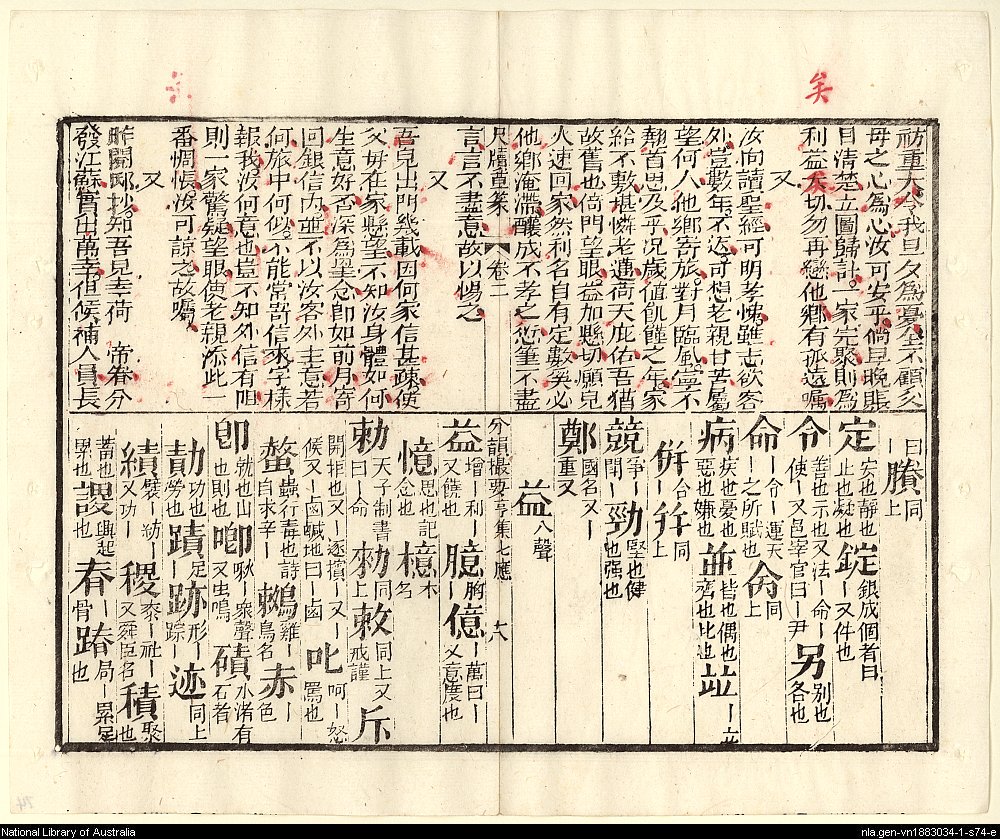 矣
初重大今我旦夕為憂全不顧父
母之心為心汝可安乎倘早晚賬
目清楚立圖歸計一家完聚則為
利益矣切勿再戀他鄉有孤遠囑
又
汝向讀聖經可明孝悌雖志欲客
外豈數年不返可想老親甘苦屬
望何人他鄉寄旅對月臨風寧不
翹首思及乎況歲值飢饉之年家
給不敷堪憐老邁荷天庇佑吾猶
故舊也倚門望眼益加懸切願兒
火速回家然利名自有定數矣必
他鄉淹滯釀成不孝之愆筆不盡
尺牘直菜 卷二
言言不盡意故以惕之
又
吾兒出門幾載因何家信甚疎使
父母在家懸望不知汝身體如何
生意好否深為罣念即如前月寄
回銀信內並不以汝客外主意若
何旅中何似不能常寄信來字樣
報我汝何意也豈不知外信有咀
則一家驚疑望眼使老親添此一
番惆悵汝可諒之故囑
又
昨閱邸抄知吾兒幸荷 帝眷分
發江蘇實出萬幸但候補人員長
曰賸同
｜上
定安也靜也止也凝也錠銀成個者曰｜又件也
令善也示也又法｜命｜使｜又邑宰官曰｜尹另別也各也
命｜令｜運天｜之所賦也肏同上
病疾也憂也惡也嫌也並皆也偶也齊也比也竝
併｜合幷同上
競爭｜鬧｜勁堅也健也强也
鄭國名又｜重
益入聲
分韻撮要亨集七應 六
益增｜利｜又饒也臆胸｜億｜萬曰｜又意度也
憶思也記念也檍木名
勅天子制書曰｜命勑同上敕同上又戒謹斥
開拒也又｜逐擯｜又｜候又｜鹵鹹地曰｜鹵叱呵｜怒罵也
螫蟲行毒也詩自求辛｜鶒鸂｜鳥名赤｜色
卽就也山也則也唧啾｜衆聲又虫鳴磧水渚有石者
勣功也功勞也蹟足｜跡形｜踪｜迹同上
績襞｜紡｜又功｜稷黍｜社｜又舜臣名積聚也
蓄也累也謖興起也脊｜骨蹐｜局｜累足也
National Library of Australia
nla.gen-vn1883034-1-s74-e